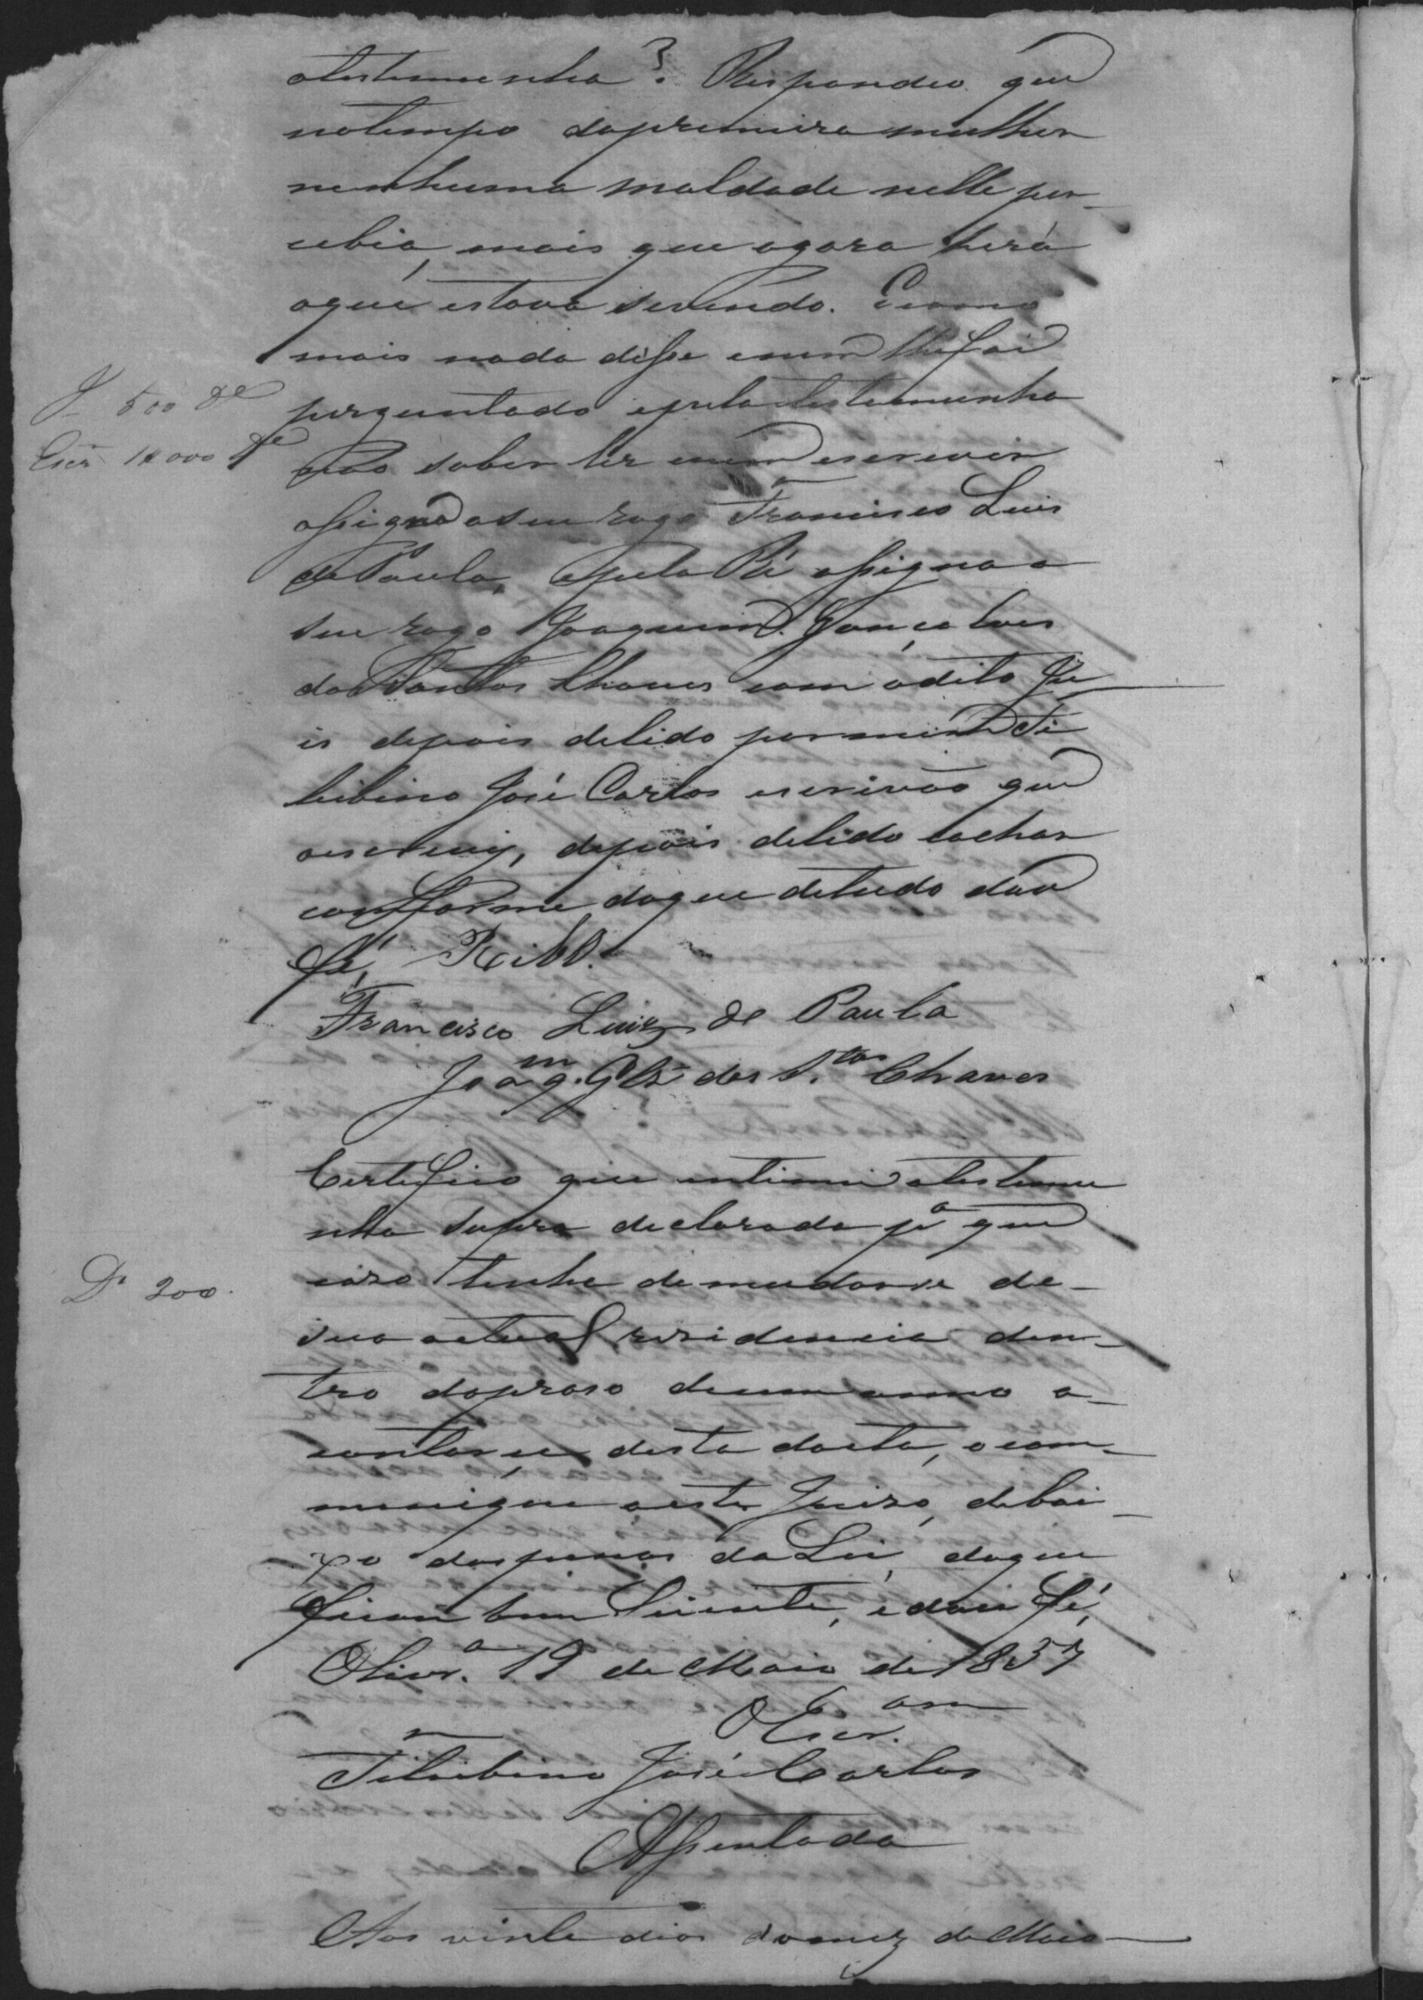 atestemunha? Respondeo que
notempo daprimeira mulher
nenhuma maldade nelle per-
cebia, mais que agora hera
oque estava servindo. Ecomo
mais nada disse enem lhe foi
J 500 De
perguntado epela testemunha
Escr.
não saber ler enem escrever
assigna aseu rogo Francisco Luis
de Paula, epela Ré assigna a
seu rogo Joaquim Gonçalves
dos Santos Chaves com odito Ju
is depois delido por mim Ti
burbino José Carlos escrivão que
oescrevi, depois delido eachar
conforme doque detudo dou
fé, Ribº.
Francisco Luiz de Paula
Joaqm. Glz dos Stos Chaves
Certifico que intimei atestemu
nha supra declarada pª que
caso tenha demudarse de-
Dº 200.
sua actual residencia den-
tro doprazo deum anno a-
contar se desta dacta, ocom-
munique aeste Juizo, debai-
xo daspenas da Lei, doque
ficou bem siente, edou fé,
Olivrª. 19 de Maio de 1857
O Escram.
José Carlos
Assentada
Aos vinte dias domez de Maio